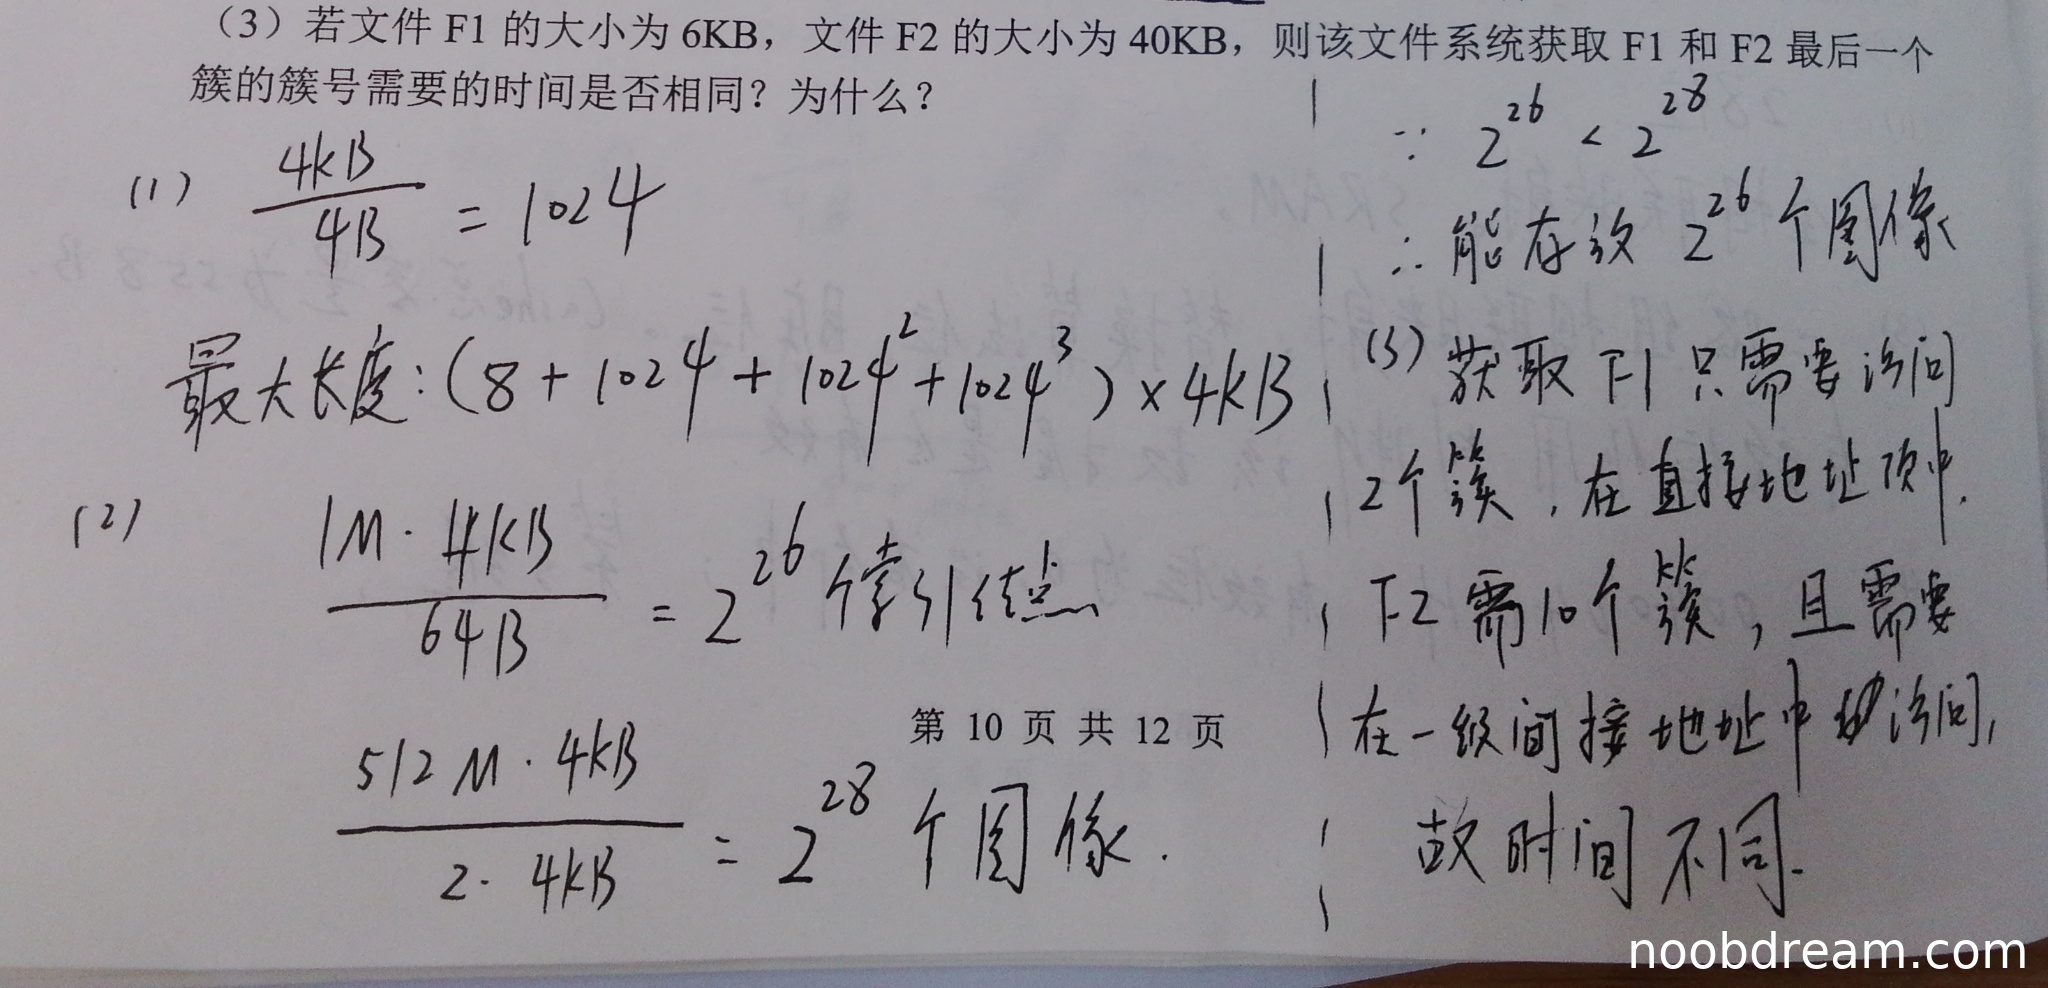 （3）若文件 F1 的大小为 6KB，文件 F2 的大小为 40KB，则该文件系统获取 F1 和 F2 最后一个
簇的簇号需要的时间是否相同？为什么？
(1) 4KB / 4B = 1024
最大长度：(8 + 1024 + 1024² + 1024³) × 4KB
(2) 1M · 4KB / 64B = 2^26 个索引结点
512M · 4KB / 2 · 4KB = 2^28 个图像.
∵ 2^26 < 2^28
∴ 能存放 2^26 个图像
(3) 获取 F1 只需要访问
2个簇，在直接地址项中.
F2 需10个簇，且需要
在一级间接地址中访问,
故时间不同.
第 10 页 共 12 页
noobdream.com